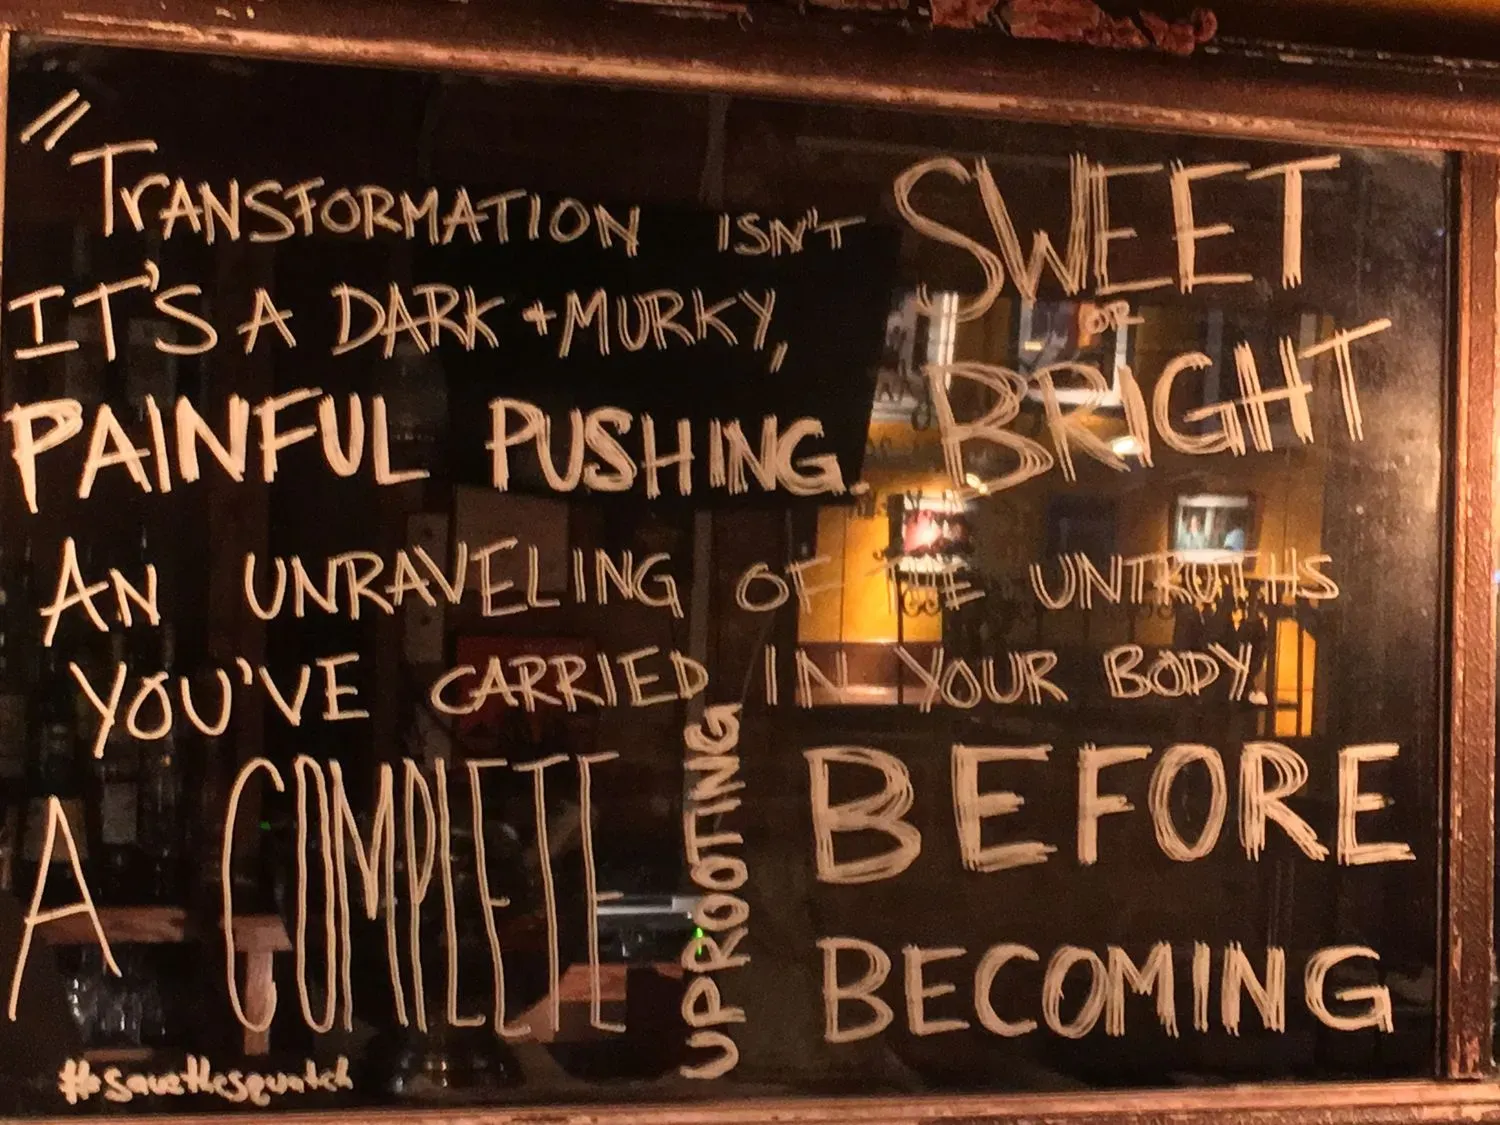 "TRANSFORMATION ISN'T SWEET
OR
BRIGHT
IT'S A DARK + MURKY,
PAINFUL PUSHING.
AN UNRAVELING OF THE UNTRUTHS
YOU'VE CARRIED IN YOUR BODY.
A COMPLETE UPROOTING BEFORE
BECOMING
#savethesquatch